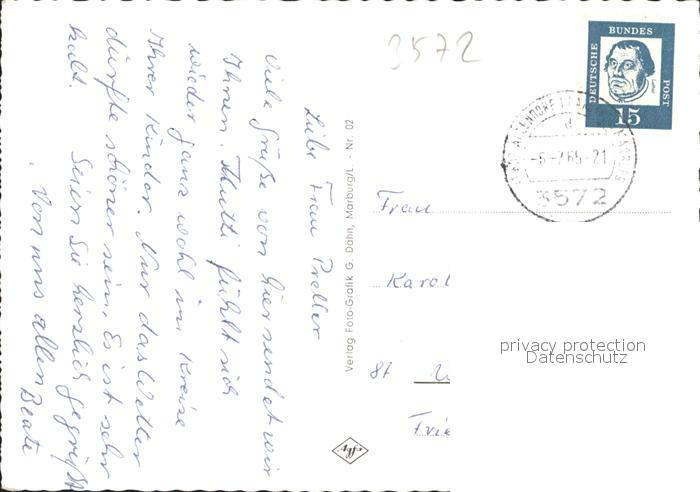 Liebe Frau Preller
viele Grüße von hier sendet wir
Ihnen. Mutti fühlt sich
wieder ganz wohl im Kreise
Ihrer Kinder. Nur das Wetter
dürfte schöner sein. Es ist sehr
kalt. Seien Sie herzlich gegrüßt
Von uns allen Beate
Verlag Foto-Grafik G. Dähn, Marburg/L. - Nr. 02
3572
DEUTSCHE BUNDES POST
Luther
15
-6.-7.65-21
3572
Frau
Karol
privacy protection
Datenschutz
87
Frie